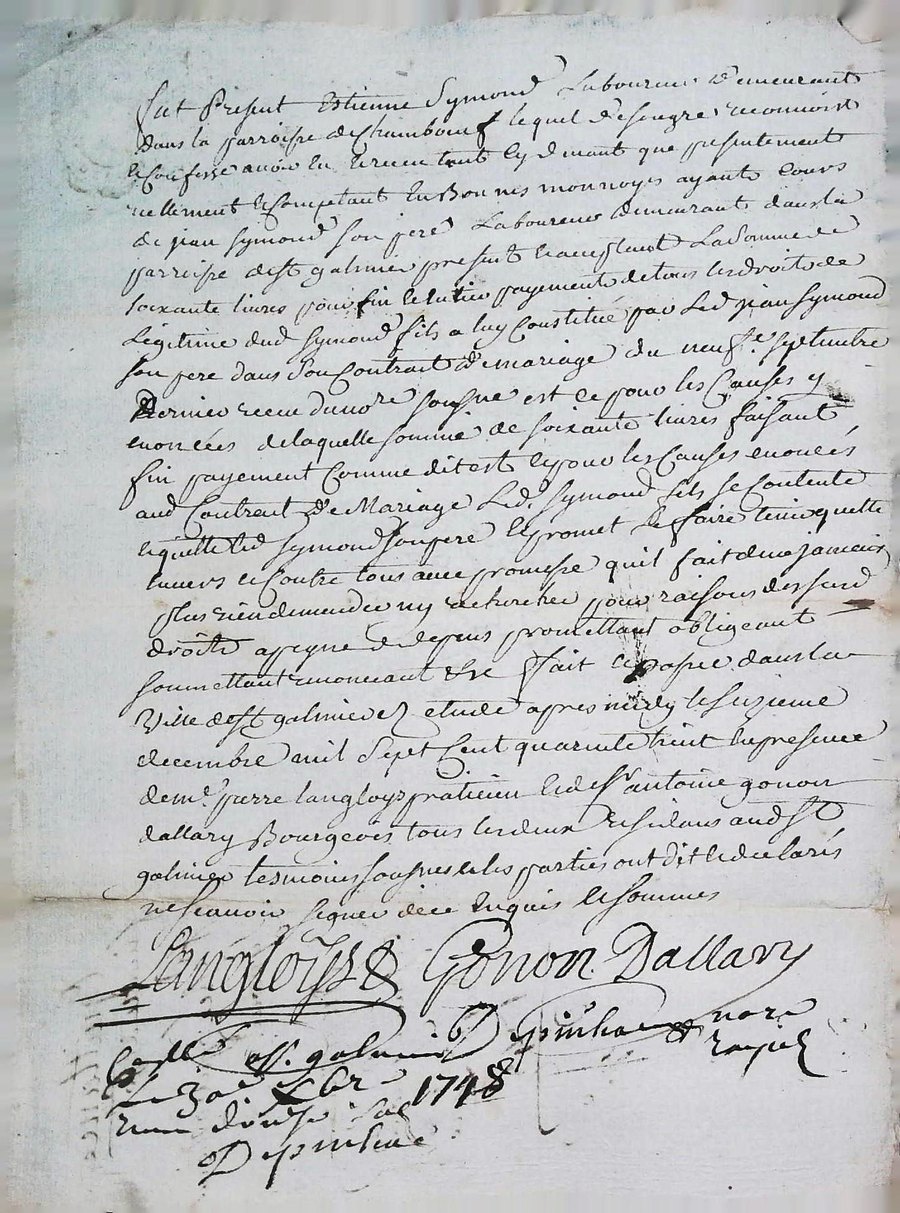 fut Present Estienne Symond Laboureur demeurant
dans la parroisse de Chambœuf lequel de son gré reconnoist
et confesse avoir eu et receu tout cy d'avant que presentement
reellement et comptant en Bonnes monnoyes ayants cours
de jean Symond son pere Laboureur demeurant dans la
parroisse de st galmier present et acceptant La Somme de
soixante livres pour fin et entier payement de tous les droits de
Légitime dud symond fils a luy Constitué par Led jean Symond
son pere dans son Contract de mariage du neufe septembre
dernier receu du nore sousné est ce pour les Causes y
enoncées de laquelle somme de soixante livres faisant
fin payement Comme dit est et pour les Causes enoncés
aud Contract de Mariage Led. Symond fils se Contente
et quitte led Symond son pere et promet le faire tenir quitte
envers et Contre tous avec promesse qu'il fait de ne jamais
plus rien demander ny rechercher pour raison desd
droits a peyne de depens promettant obligeant
soumettant renoncant &c fait et passé dans la
Ville de st galmier etude apres midy le
decembre mil Sept Cent quarente huit en presence
de me pierre langloys praticien et de sr antoine gonon
dallary Bourgeois tous les deux residans aud st
galmier tesmoins sousnes et les parties ont dit et declarés
ne scavoir signer de ce enquis et sommes
Langloys Gonon Dallary
Depinhac nore
Royal
Collé a st. galmier
Le Xbre 1748
receu douze sols
Depinhac